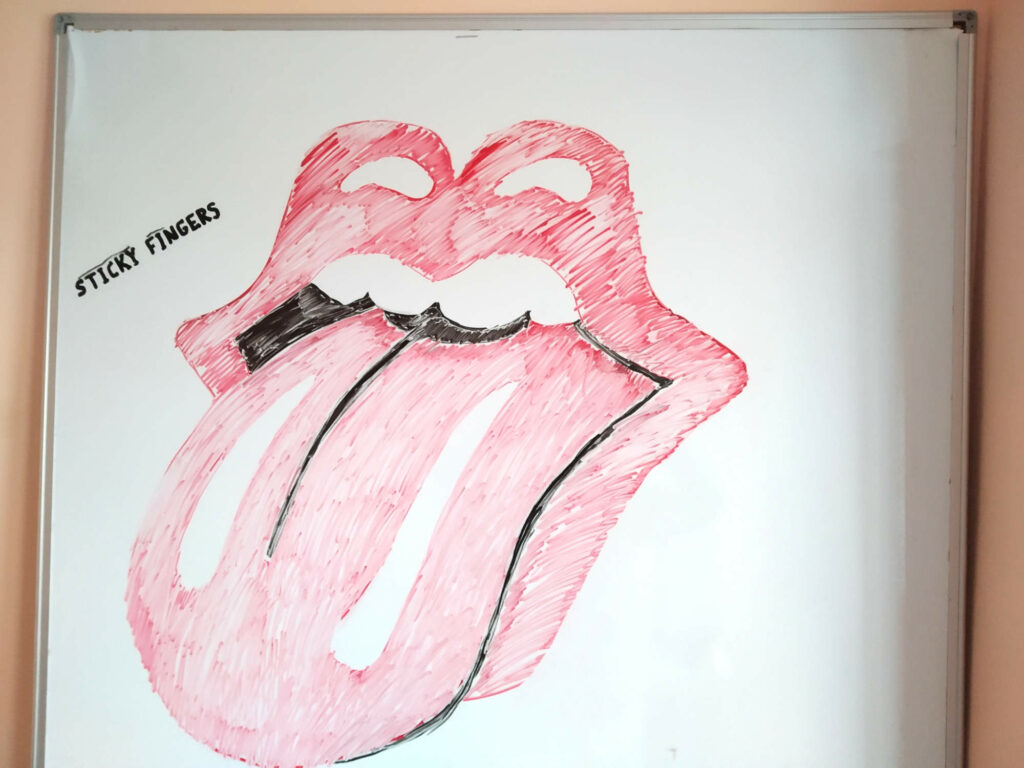 STICKY FINGERS